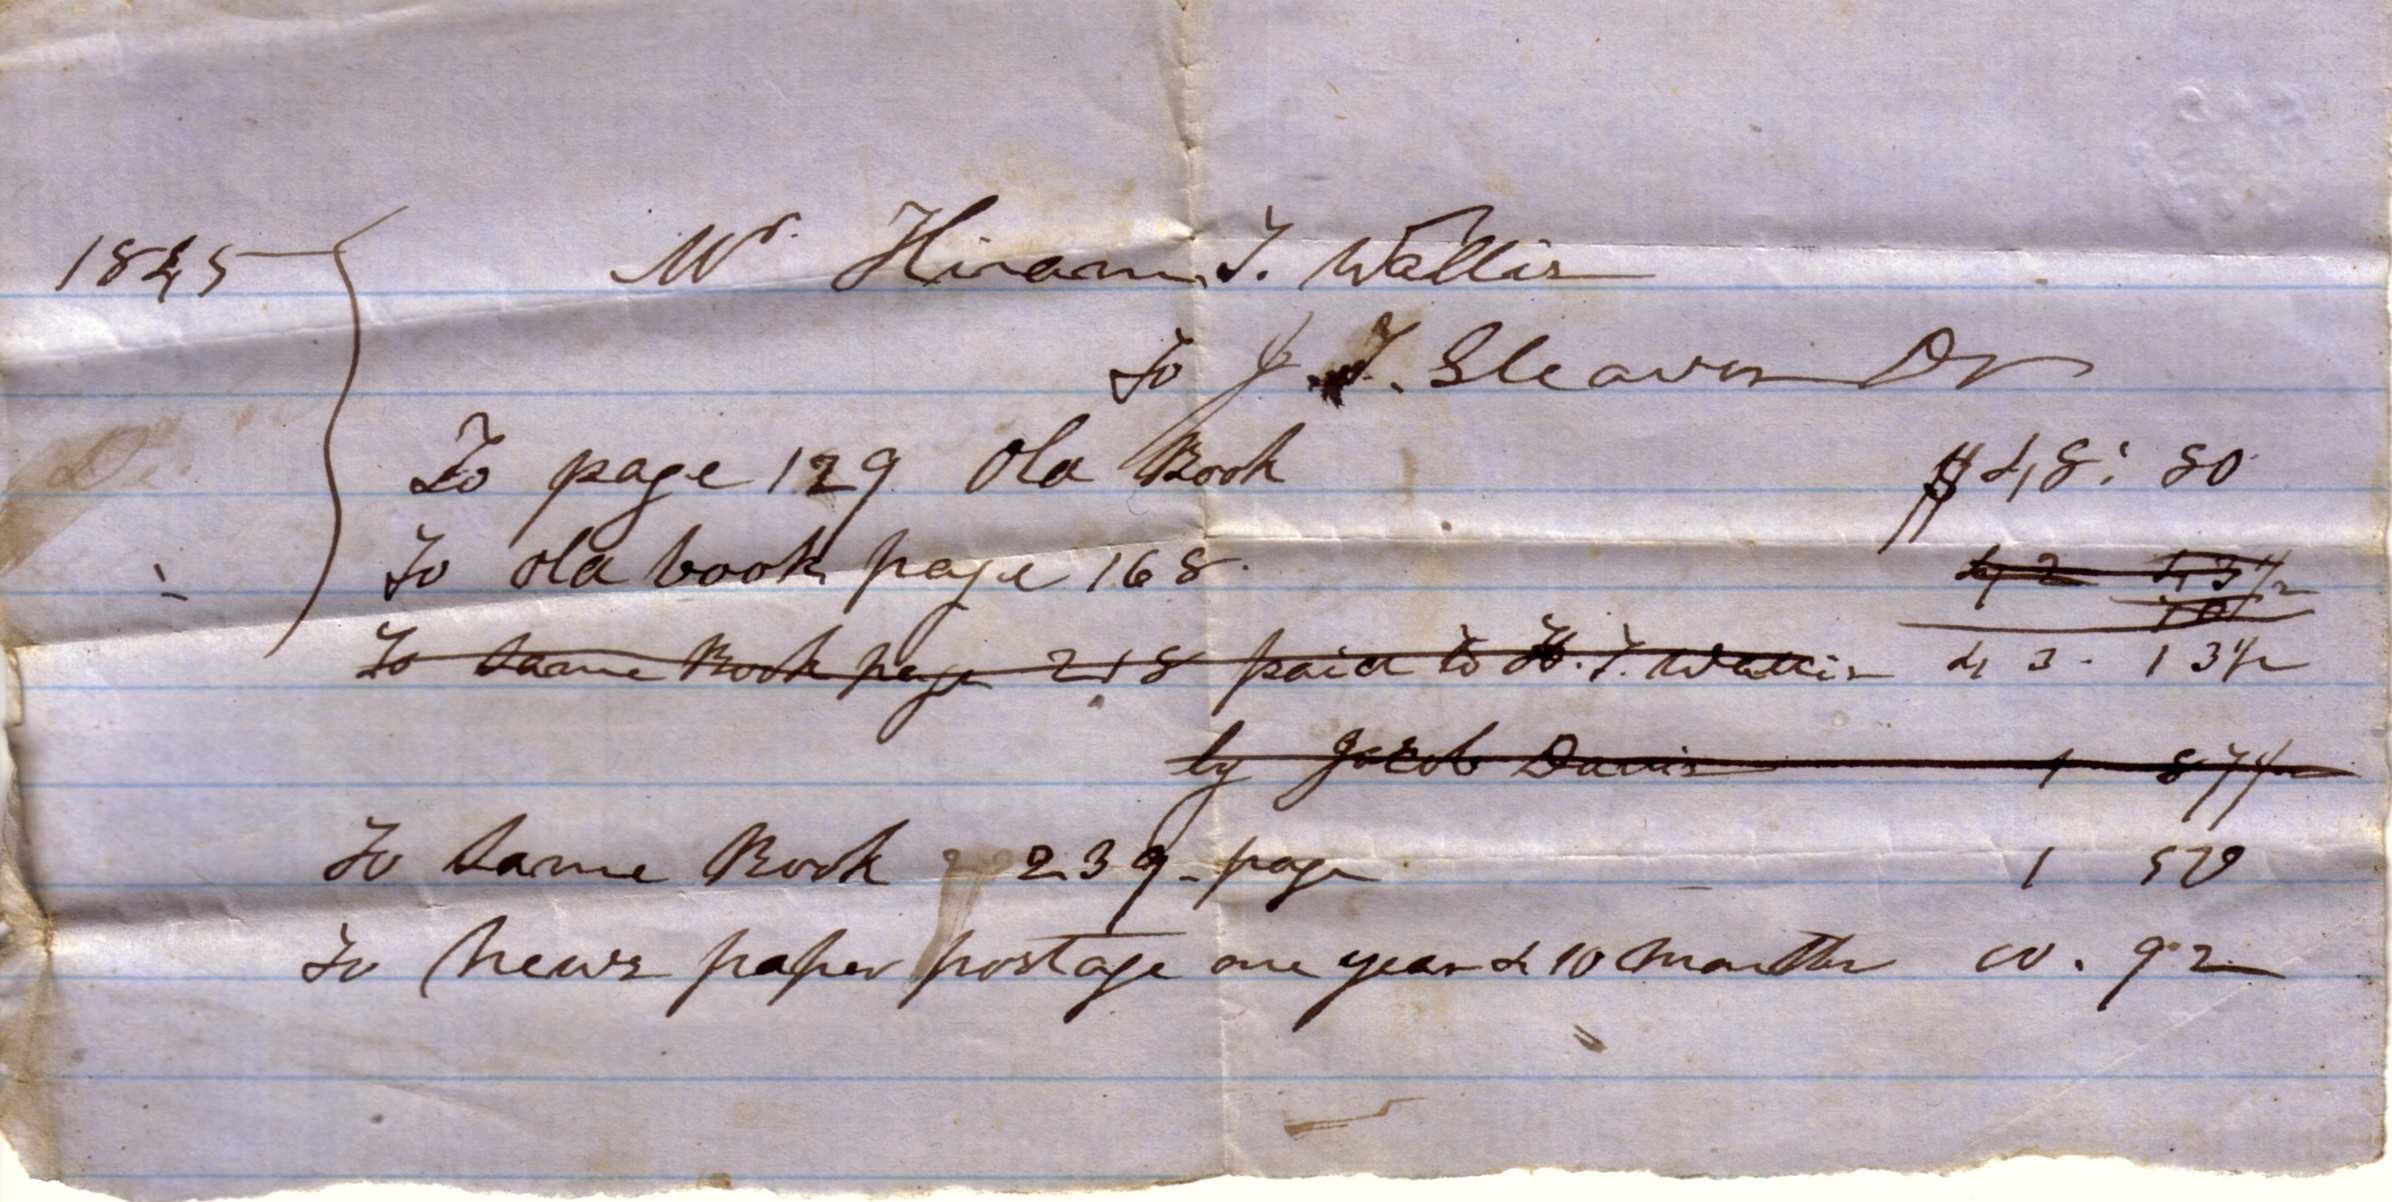 1845 Mr. Hiram T. Wallis
To J. T. Sleaver Dr
To page 129 Old Book $48: 80
To old book page 168. 42 43½
70
To Same Book page 218 paid to H. T. Wallis 43. 13½
by Jacob Davis 1 87½
To Same Book 239 page 1 50
To News paper postage one year & 10 months 00. 92